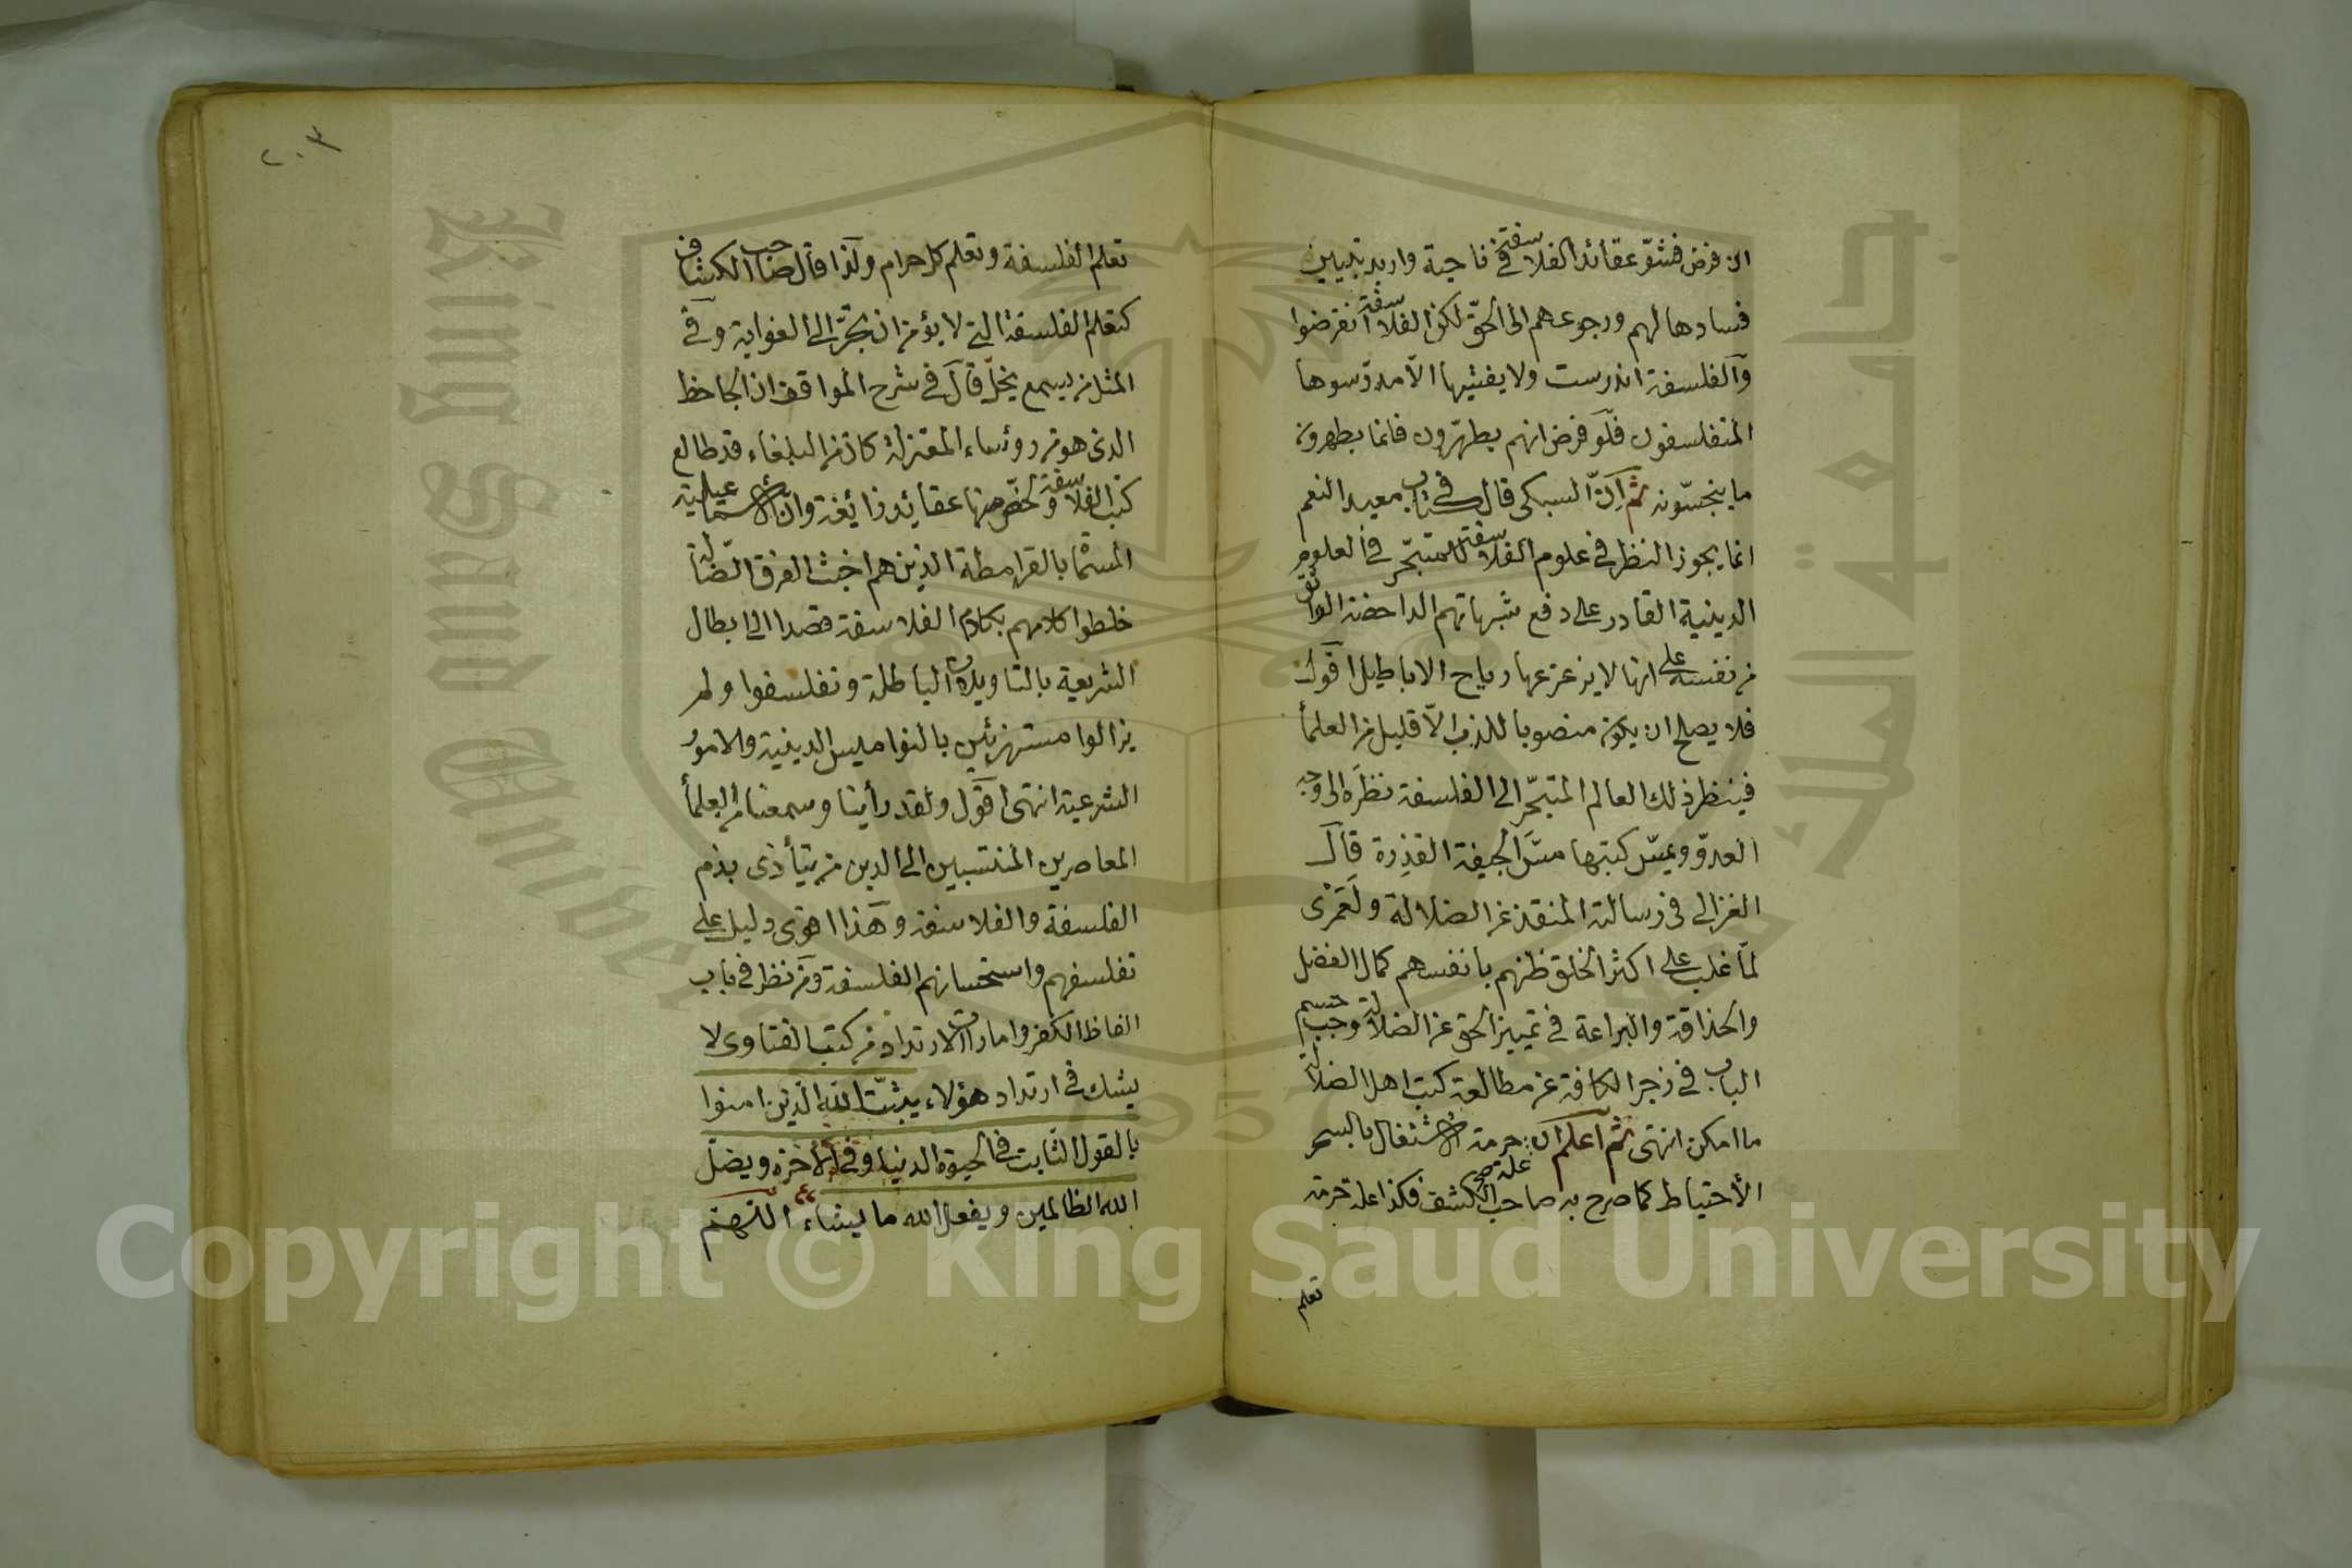 ان فرض فشوّ عقائد الفلاسفة في ناحية واريد تبيين
فسادها لهم ورجوعهم الى الحقّ لكن الفلاسفة انقرضوا
والفلسفة اندرست ولا يفشيها الّا مدرّسوها
المتفلسفون فلو فرض انهم يطهّرون فانما يطهرون
ما ينجسّونه ثم انّ السبكى قال في كتاب معيد النعم
انما يجوز النظر في علوم الفلاسفة للمتبحّر في العلوم
الدينية القادر على دفع شبهاتهم الداحضة الواثق
من نفسه على انها لا يزعزعها رياح الاباطيل اقول
فلا يصلح ان يكون منصوبا للذب الّا قليل من العلمأ
فينظر ذلك العالم المتبحّر الى الفلسفة نظره الى وجه
العدوّ ويمسّ كتبها مسّ الجيفة القذرة قال
الغزالى فى رسالته المنقذ عن الضلالة ولعمرى
لمّا غلب على اكثر الخلق ظنهم بانفسهم كمال الفضل
والحذاقة والبراعة في تمييز الحق عن الضلالة وجب حسم
الباب في زجر الكافة عن مطالعة كتب اهل الضلالة
ما امكن انتهى ثم اعلم ان حرمة الاشتغال بالسحر
علة صح
الأحتياط كما صرح به صاحب الكشف فكذا علة حرمة
تعلم
٢٠٣
تعلم الفلسفة وتعلم كل حرام ولذا قال صاحب الكشاف
كتعلم الفلسفة التي لا يؤمن ان تجرّ الى الغواية وفي
المثل من يسمع يخل قال في شرح المواقف ان الجاحظ
الذى هو من رؤساء المعتزلة كان من البلغاء قد طالع
كتب الفلاسفة ولخّص منها عقائد زائغة وانّ الاسماعيلية
المسمّا بالقرامطة الذين هم اخبث الفرق الضّالّة
خلطوا كلامهم بكلام الفلاسفة قصدا الى ابطال
الشريعة بالتاويلات الباطلة وتفلسفوا ولم
يزالوا مستهزئين بالنواميس الدينية والامور
الشرعية انتهى اقول ولقد رأينا وسمعنا من العلمأ
المعاصرين المنتسبين الى الدين من يتأذى بذم
الفلسفة والفلاسفة وهذا اقوى دليل على
تفلسفهم واستحسانهم الفلسفة ومن نظر في باب
الفاظ الكفر وامارات الارتداد من كتب الفتاوى لا
يشك في ارتداد هؤلاء يثبّت الله الذين امنوا
بالقول الثابت في الحيوة الدنيا وفي الأخرة ويضلّ
الله الظالمين ويفعل الله ما يشاء اللهم
جامعة الملك سعود
King Saud University
1957
Copyright © King Saud University